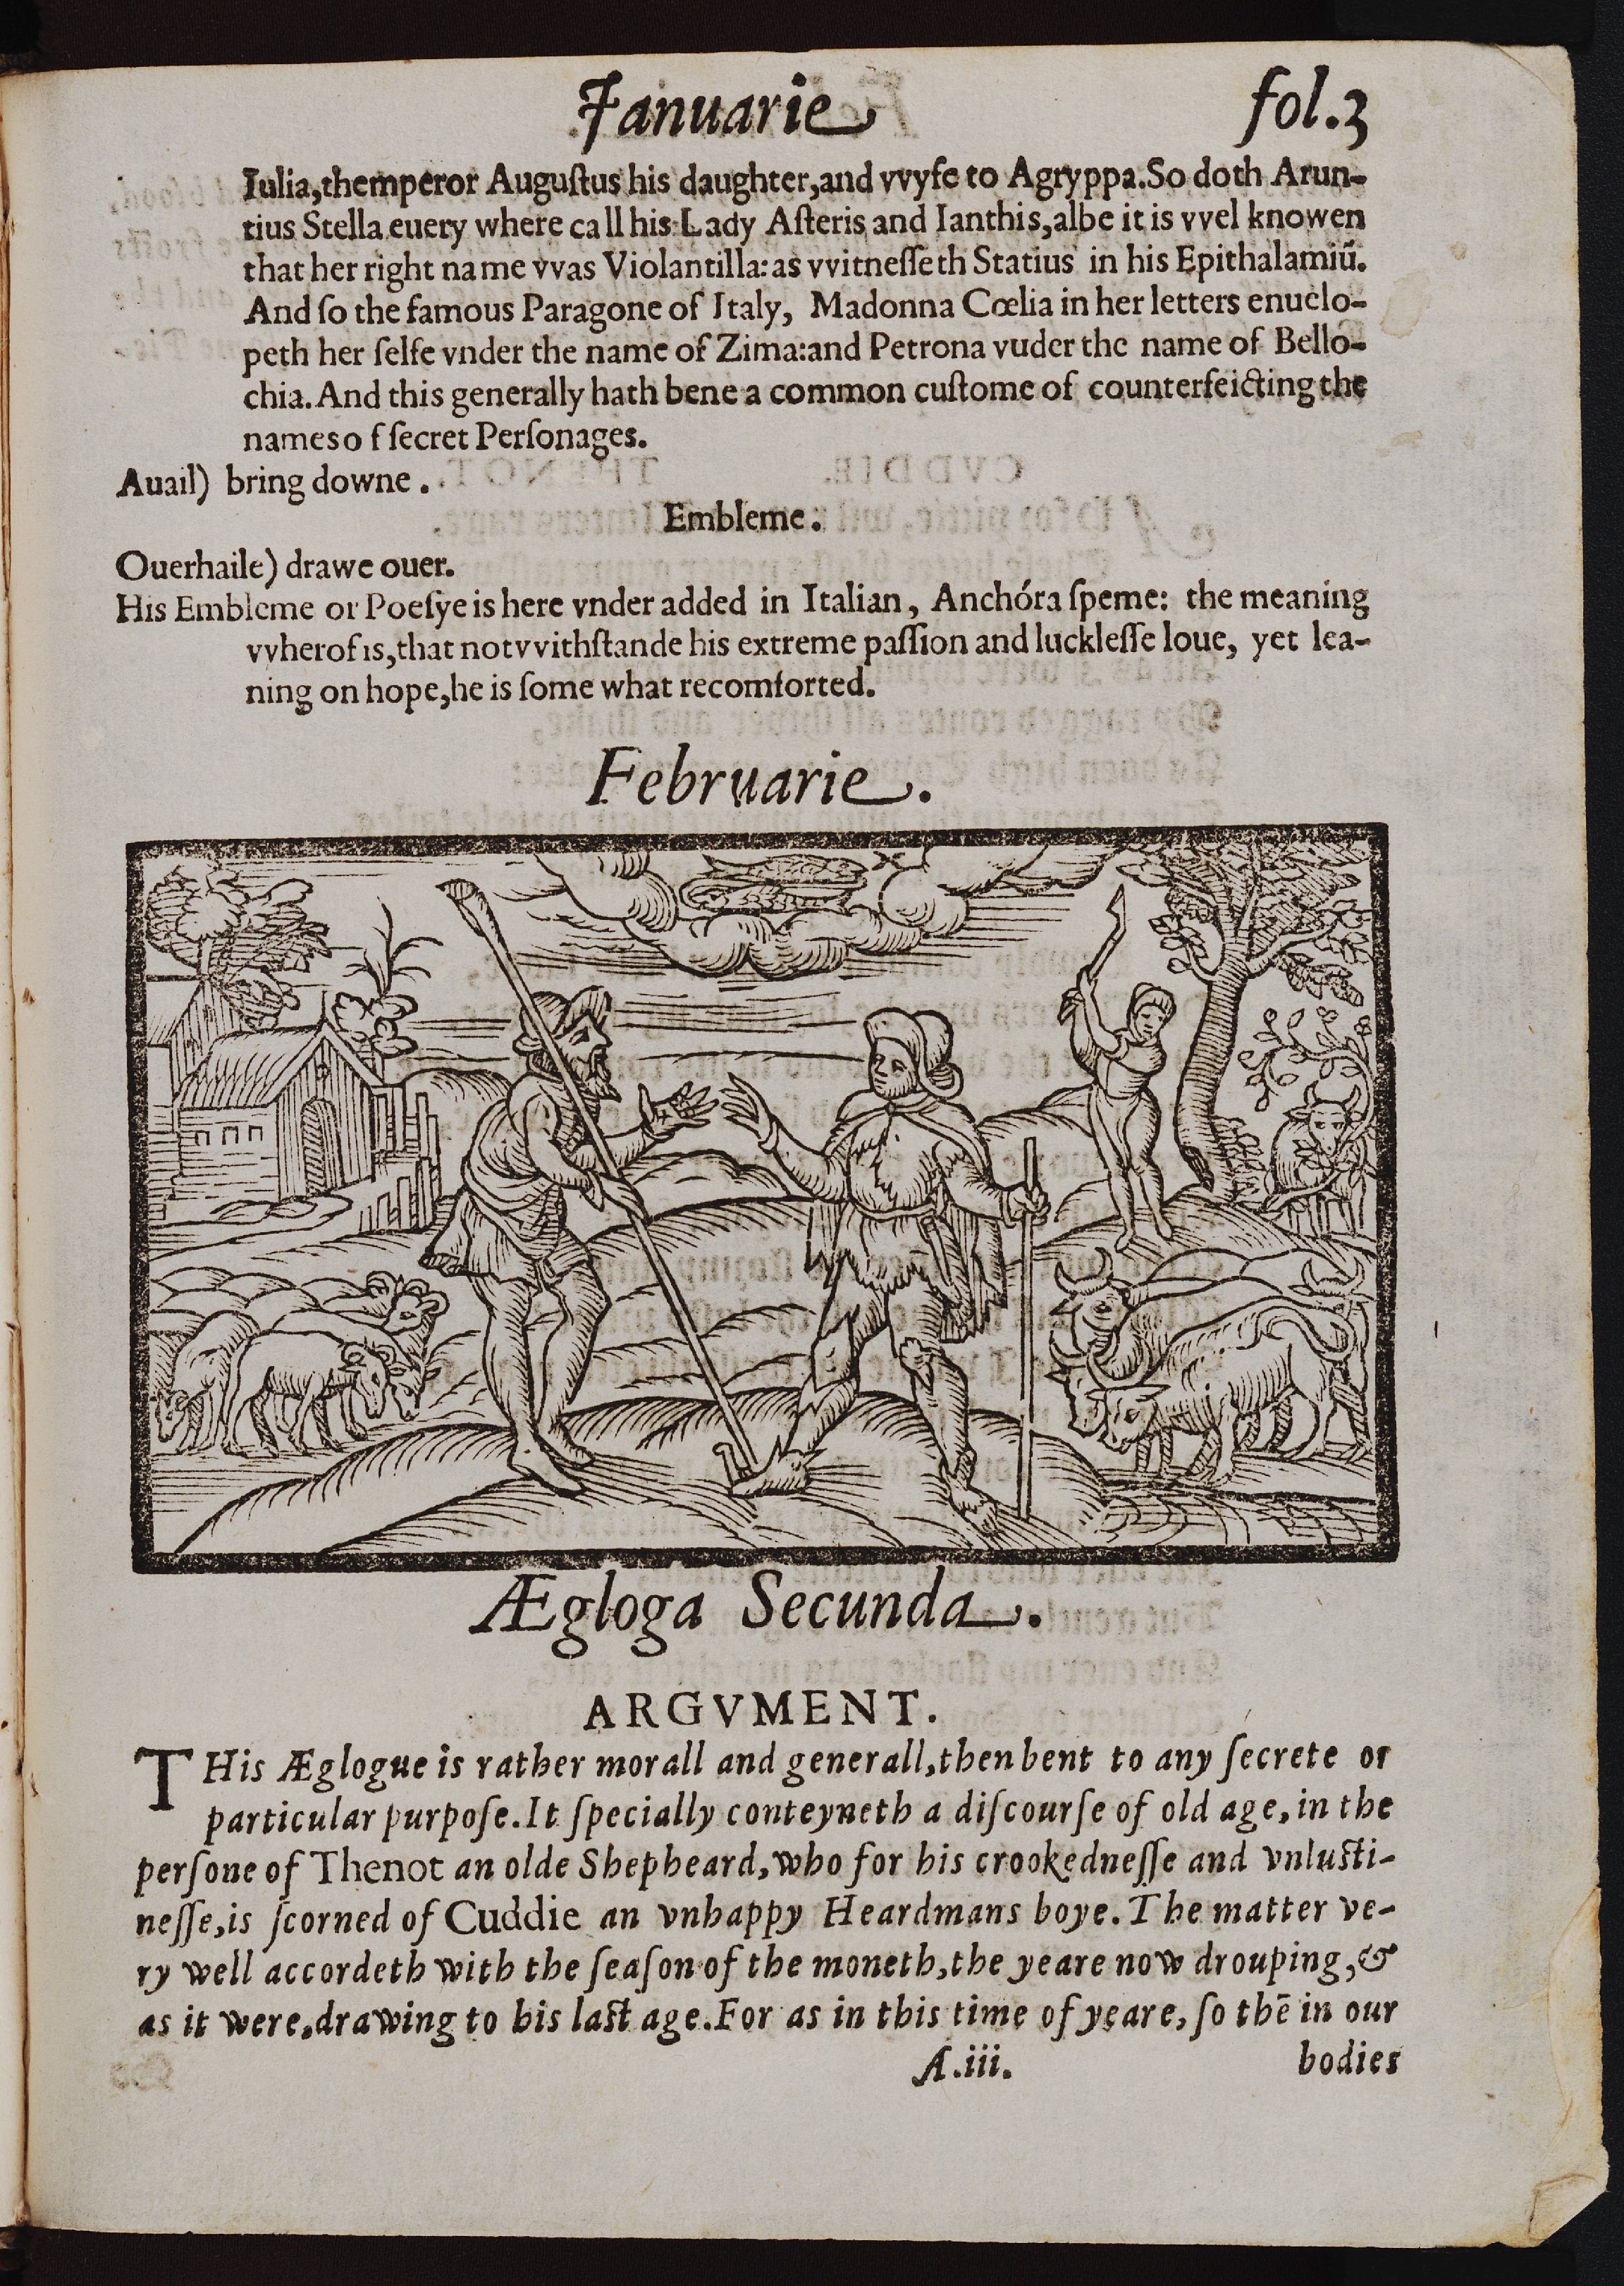 Ianuarie fol.3
Iulia,themperor Auguſtus his daughter,and vvyfe to Agryppa.So doth Arun-
tius Stella euery where call his Lady Aſteris and Ianthis,albe it is vvel knowen
that her right name vvas Violantilla:as vvitneſſeth Statius in his Epithalamiū.
And ſo the famous Paragone of Italy, Madonna Cœlia in her letters enuelo-
peth her ſelfe vnder the name of Zima:and Petrona vuder the name of Bello-
chia.And this generally hath bene a common cuſtome of counterfeicting the
nameso f ſecret Perſonages.
Auail) bring downe .
Embleme.
Ouerhaile) drawe ouer.
His Embleme or Poeſye is here vnder added in Italian, Anchóra ſpeme: the meaning
vvherof is,that notvvithſtande his extreme paſſion and luckleſſe loue, yet lea-
ning on hope,he is ſome what recomforted.
Februarie.
Ægloga Secunda.
ARGVMENT.
THis Æglogue is rather morall and generall,then bent to any ſecrete or
particular purpoſe.It ſpecially conteyneth a diſcourſe of old age, in the
perſone of Thenot an olde Shepheard,who for his crookedneſſe and vnluſti-
neſſe,is ſcorned of Cuddie an vnhappy Heardmans boye.The matter ve-
ry well accordeth with the ſeaſon of the moneth,the yeare now drouping,&
as it were,drawing to his laſt age.For as in this time of yeare, ſo thē in our
A.iii. bodies